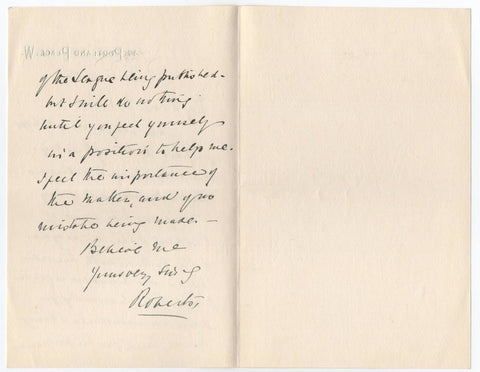 of the League being published –
but I will do nothing
until you feel yourself
in a position to help me.
I feel the importance of
the matter, and of no
mistake being made –
Believe me
Yours very
Roberts